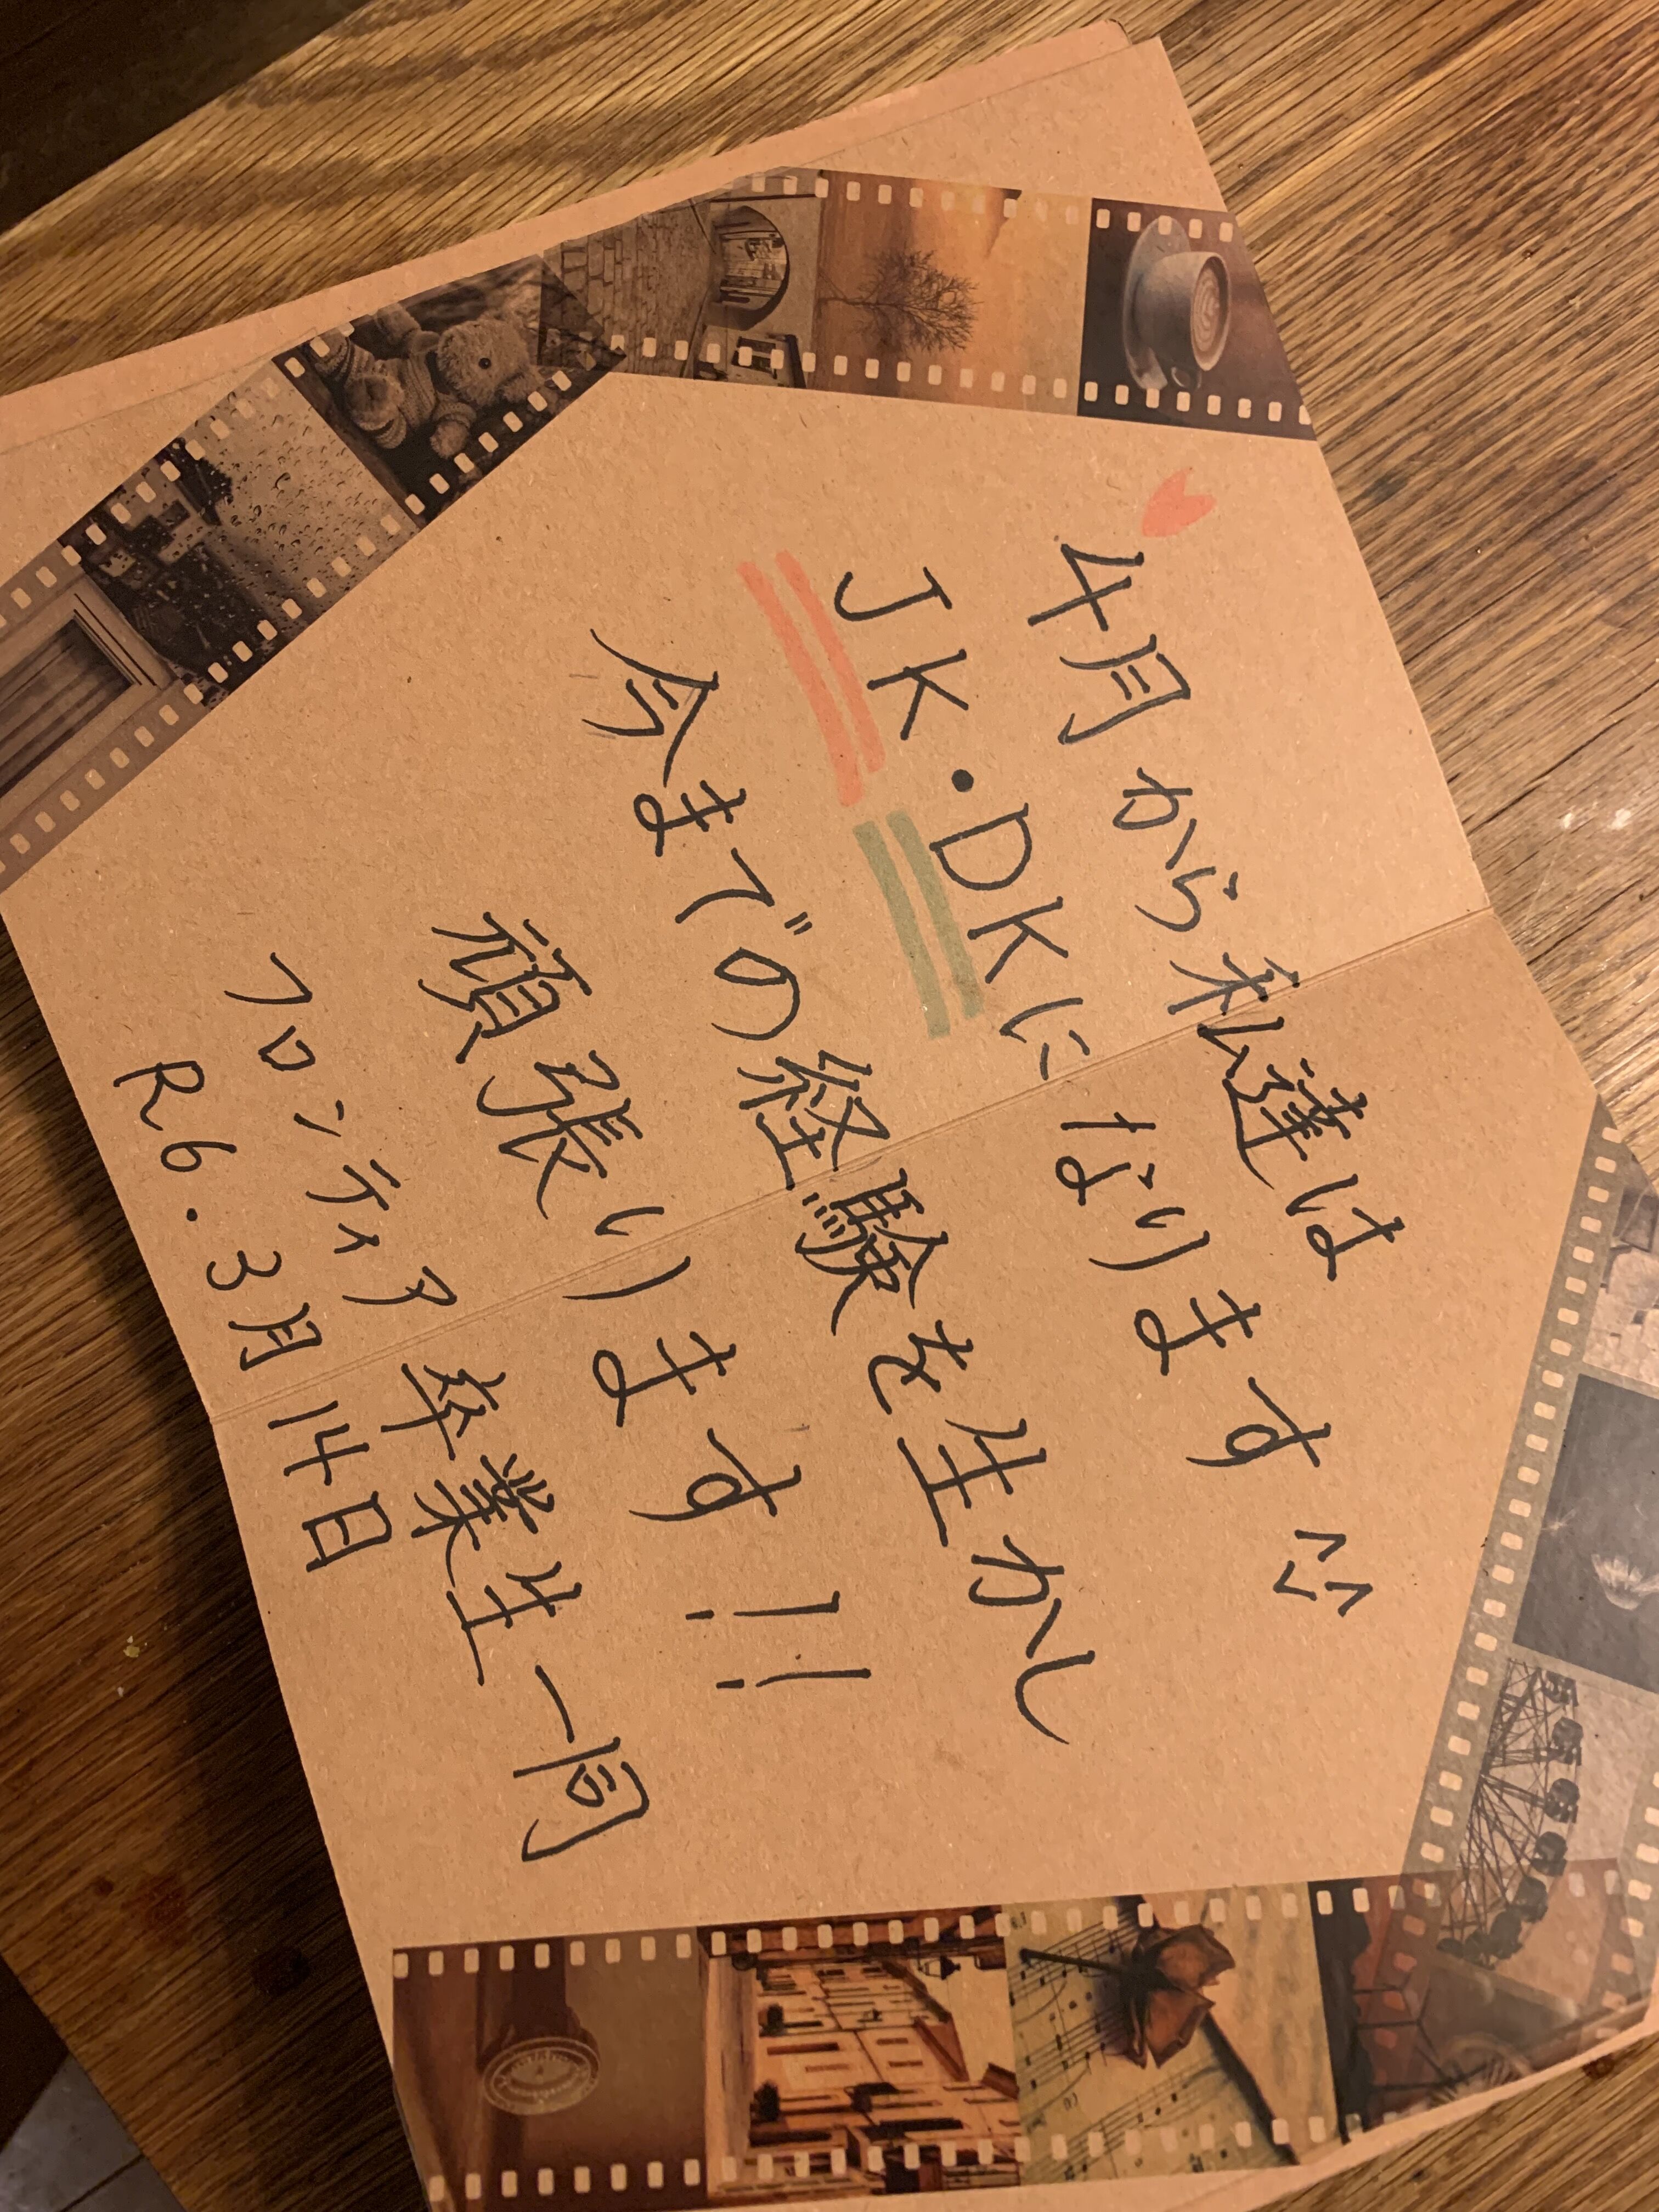 4月から私達は
JK・DKになります ^^
今までの経験を生かし
頑張ります!!
フロンティア 卒業生一同
R6.3月14日